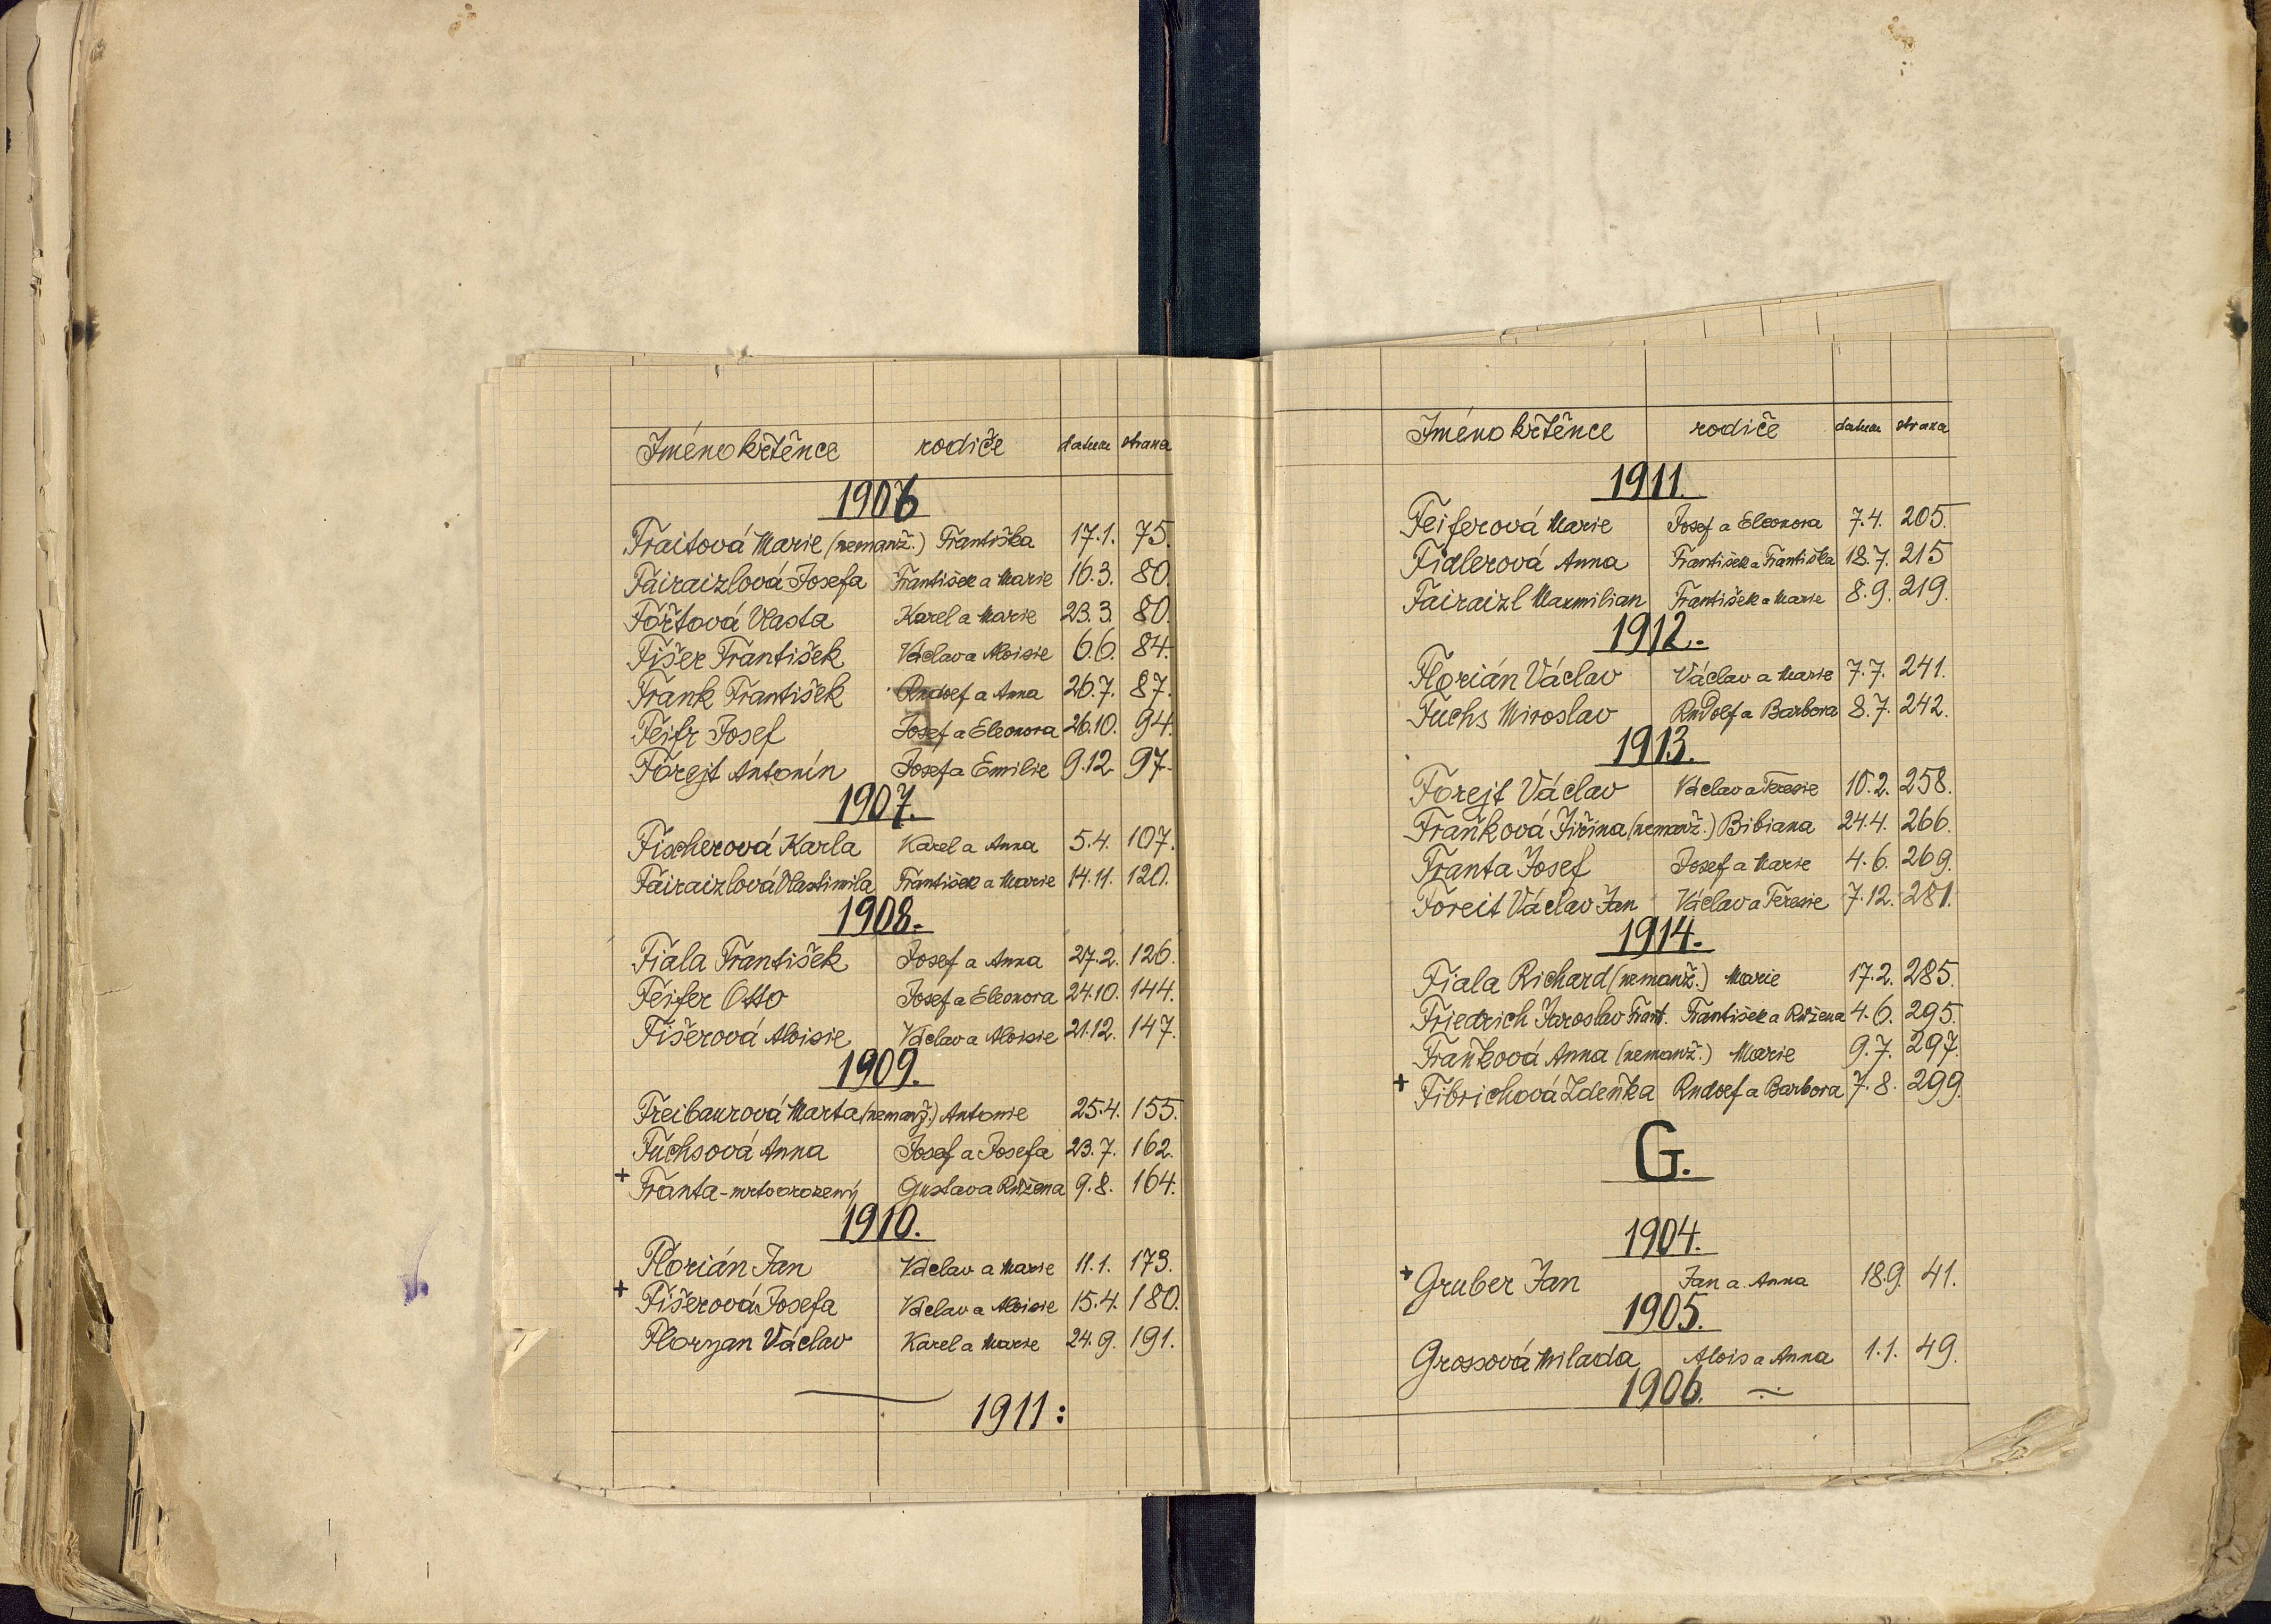 Jméno křtěnce rodiče datum strana
1906
Fraitová Marie (nemanž.) Františka 17.1. 75.
Fairaizlová Josefa František a Marie 16.3. 80.
Fořtová Vlasta Karel a Marie 23.3. 80.
Fišer František Václav a Aloisie 6.6. 84.
Frank František Rudolf a Anna 26.7. 87.
Feifr Josef Josef a Eleonora 26.10. 94.
Forejt Antonín Josef a Emilie 9.12. 97.
1907.
Fischerová Karla Karel a Anna 5.4. 107.
Fairaizlová Vlastimila František a Marie 14.11. 120.
1908.
Fiala František Josef a Anna 27.2. 126.
Feifer Otto Josef a Eleonora 24.10. 144.
Fišerová Aloisie Václav a Aloisie 21.12. 147.
1909.
Freibaurová Marta (nemanž.) Antonie 25.4. 155.
Fuchsová Anna Josef a Josefa 23.7. 162.
+ Franta - mrtvorozený Gustav a Růžena 9.8. 164.
1910.
Florián Jan Václav a Marie 11.1. 173.
+ Fišerová Josefa Václav a Aloisie 15.4. 180.
Floryan Václav Karel a Marie 24.9. 191.
1911:
Jméno křtěnce rodiče datum strana
1911.
Feiferová Marie Josef a Eleonora 7.4. 205.
Fidlerová Anna František a Františka 18.7. 215
Fairaizl Maxmilian František a Marie 8.9. 219.
1912.-
Florián Václav Václav a Marie 7.7. 241.
Fuchs Miroslav Rudolf a Barbora 8.7. 242.
1913.
Forejt Václav Václav a Terezie 10.2. 258.
Fraňková Jiřina (nemanž.) Bibiana 24.4. 266.
Franta Josef Josef a Marie 4.6. 269.
Foreit Václav Jan Václav a Terezie 7.12. 281.
1914.
Fiala Richard (nemanž.) Marie 17.2. 285.
Friedrich Jaroslav Frant. František a Růžena 4.6. 295.
Fraňková Anna (nemanž.) Marie 9.7. 297.
+ Fibrichová Zdeňka Rudolf a Barbora 7.8. 299.
G.
1904.
+ Gruber Jan Jan a Anna 18.9. 41.
1905.
Grossová Milada Alois a Anna 1.1. 49.
1906.